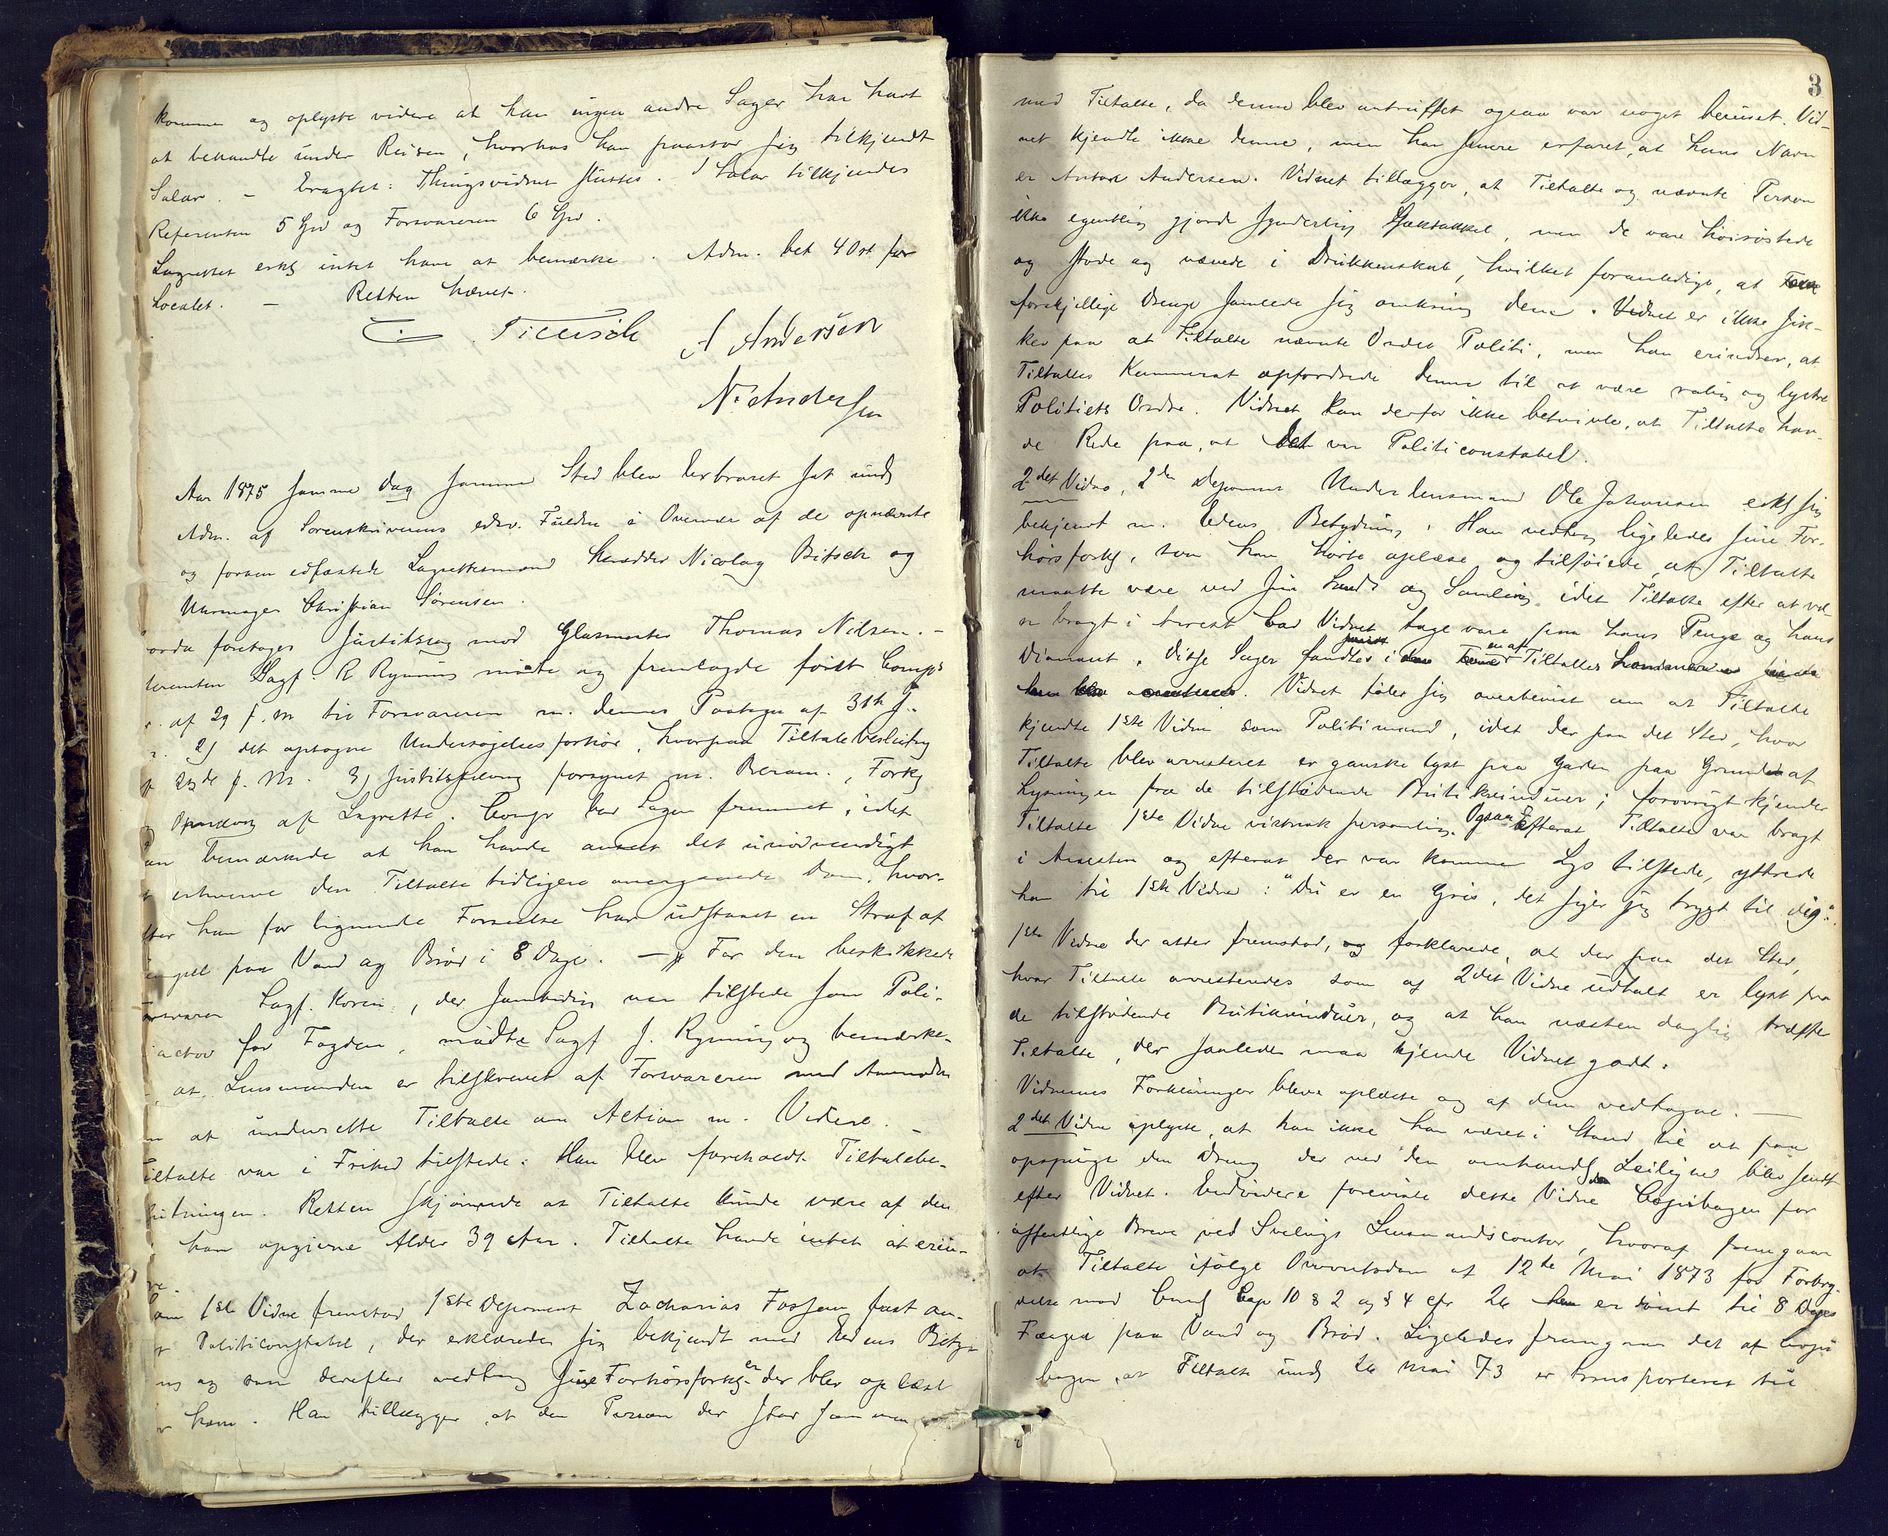 komme og oplyste videre at han ingen andre Sager har havt
at behandle under Reisen, hvorhos han paastod sig tilkjendt
Salar. — Eragtet: Thingsvidnet sluttes. I Salar tilkjendes
Referenten 5 Spd og Forsvareren 6 Spd.
Lagrettet erkl intet have at bemærke. Adm. bet 40 ort for
Localet. — Retten hævet.
Tillisch A Andersen
N. Andersen
Aar 1875 samme dag samme Sted blev Extraret sat und
Adm. af Sorenskriverens edsv. Fuldm i Overvær af de opnævnte
og forsen edfæstede Lagrettesmænd Nicolay Bitsch og
Uhrmager Christian Sørensen.
foretages Justitssag mod Glasmester Thomas Nilsen. —
Sagf. R Ryning mødte og fremlagde først
af 29 f. M til Forsvareren m. dennes Paategn af 31te
2) det optagne Undersøgelsesforhør, hvorpaa Tiltalebeslutng
23de f. M. 3) Justitsstevning forsynet m. Beram., Forkl
og Opnævng af Lagrette. Comp bad Sagen fremmet, idet
han bemærkede at han havde anseet det unødvendigt
at erhverve den Tiltalte tidligere overgaaede Dom, hvor-
efter han for lignende Forseelse har udstaaet en Straf af
Fængsel paa Vand og Brød i 8 Dage. — For den beskikkede
Forsvarer Sagf. Koren, der samtidig var tilstede som Poli-
actor for Fogden, mødte Sagf J. Ryning og bemærke-
at Lensmanden er tilskrevet af Forsvareren med Anmodn
om at underrette Tiltalte om Aktion m. Videre. —
Tiltalte var i Frihed tilstede. Han blev foreholdt Tiltalebe-
slutningen. Retten skjønnede at Tiltalte kunde være af den
han opgivne Alder 39 Aar. Tiltalte havde intet at erin-
Som 1ste Vidne fremstod 1ste Deponent Zacharias Fossum, fast an-
Politiconstabel, der erklærede sig bekjendt med Edens Betyd-
ng og som derefter vedtog sine Forhørsforkl der blev oplæst
for ham. Han tillægger, at den Person der stod sammen
3
med Tiltalte, da denne blev antruffet ogsaa var noget beruset. Vid-
net kjendte ikke denne, men har senere erfaret, at hans Navn
er Anton Andersen. Vidnet tillægger, at Tiltalte og nævnte Person
ikke egentlig gjorde synderlig Spektakkel, men de vare høirøstede
og stode og vævede i Drukkenskab, hvilket foranledige, at
forskjellige Drenge samlede sig omkring dem. Vidnet er ikke sik-
ker paa at Tiltalte nævnte Ordet Politi, men han erindrer, at
Tiltaltes Kammerat opfordrede denne til at være rolig og lystre
Politiets Ordre. Vidnet kan derfor ikke betvivle, at Tiltalte hav-
de Rede paa, at det var Politiconstabel.
2det Vidne, 2den Deponent Underlensmand Ole Johansen erkl sig
bekjendt m. Edens Betydning. Han vedtog ligeledes sine For-
hørsforkl, som han hørte oplæse og tilføiede, at Tiltalte
maatte være ved sin Sands og Samling, idet Tiltalte efter at væ-
re bragt i Arrest bad Vidnet tage vare paa hans Penge og hans
Diamant. Disse Sager fandtes i Tiltaltes
Vidnet føler sig overbevist om at Tiltalte
kjendte 1ste Vidne som Politimand, idet der paa det Sted, hvor
Tiltalte blev arresteret er ganske lyst paa Gaden paa Grund af
Lysningen fra de tilstødende Butikvinduer; forøvrigt kjender
Tiltalte 1ste Vidne vistnok personlig. Ogsaa efterat Tiltalte var bragt
i Arresten og efterat der var kommen Lys tilstede, yttrede
han til 1ste Vidne: "Du er en Gris, det siger jeg trygt til dig".
1ste Vidne der atter fremstod, og forklarede, at der paa det Sted,
hvor Tiltalte arresteredes som af 2det Vidne udtalt er lyst fra
de tilstødende Butikvinduer, og at han næsten daglig træffer
Tiltalte, der saaledes maa kjende Vidnet godt.
Vidnernes Forklaringer bleve oplæste og af dem vedtagne. —
2det Vidne oplyste, at han ikke har været i Stand til at faa
opspurgt den Dreng der ved den omhandl Leilighed blev sendt
efter Vidnet. Endvidere foreviste dette Vidne Copibogen for
offentlige Breve ved Svelvigs Lensmandscontor, hvoraf fremgaar
at Tiltalte ifølge Overretsdom af 12te Mai 1873 for Forbry-
delse mod Cap 10 § 2 og § 4 cfr 26 er dømt til 8 Dages
Fængsel paa Vand og Brød. Ligeledes fremgaar det af Copi
bogen, at Tiltalte und 26 Mai 73 er transporteret til